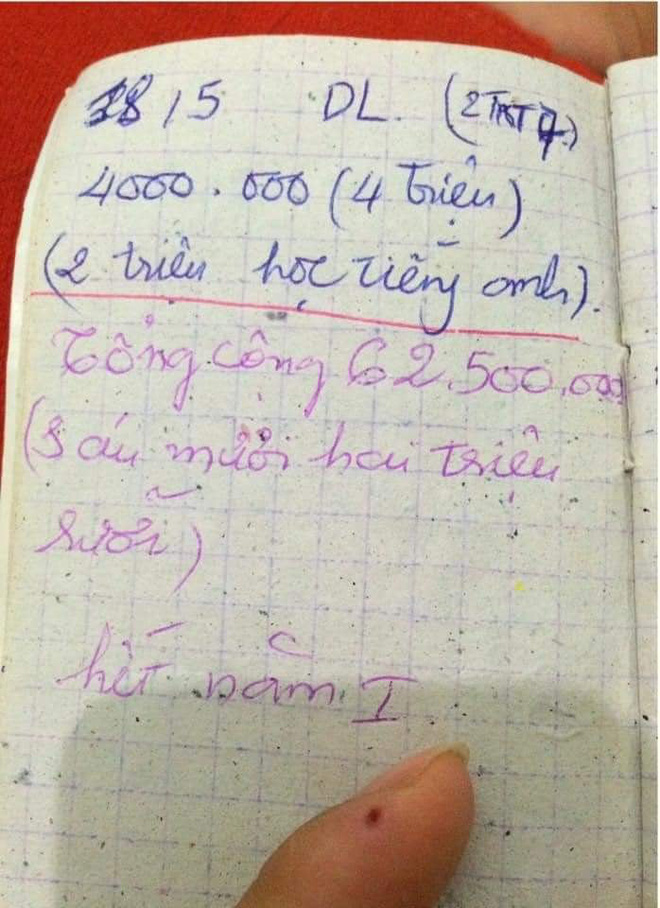 18/5 DL.
4000.000 (4 triệu)
(2 triệu học tiếng anh).
Tổng cộng 62.500.000
(Sáu mươi hai triệu
rưỡi)
hết năm I